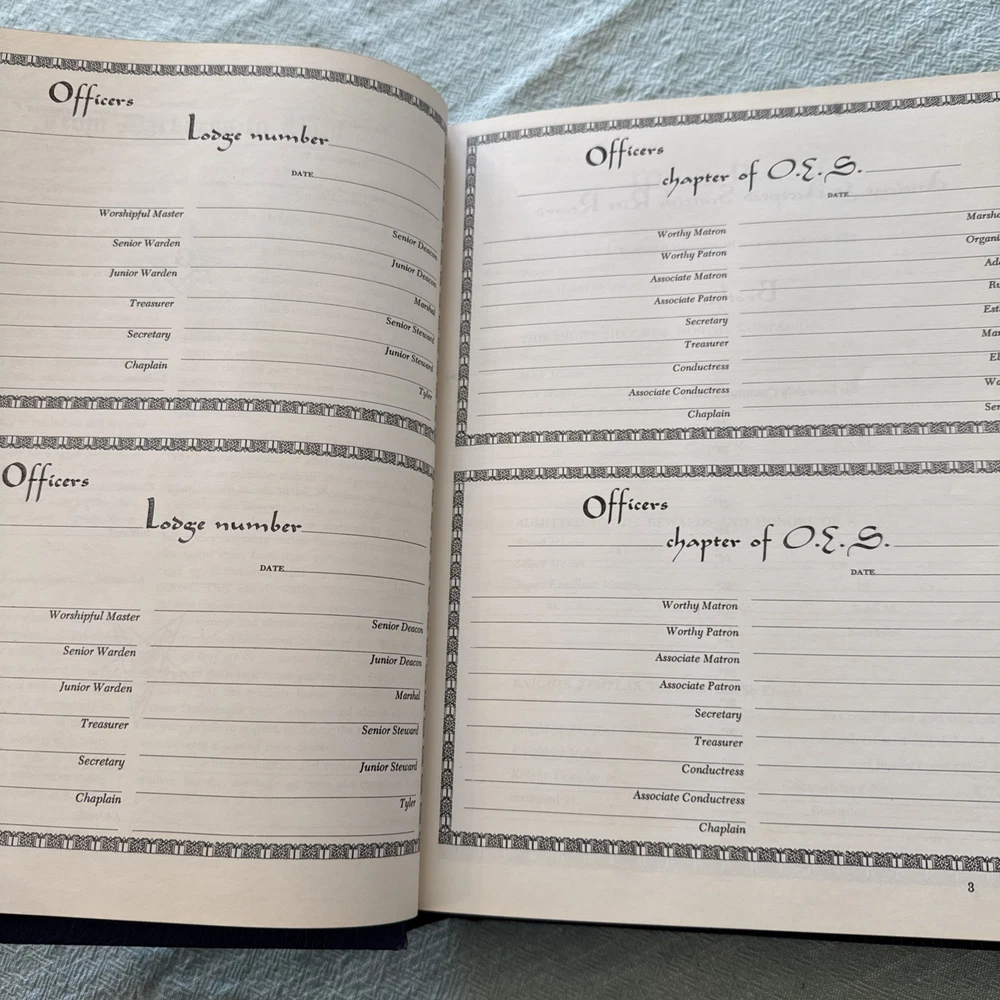 Officers
Lodge number
DATE
Worshipful Master
Senior Deacon
Senior Warden
Junior Deacon
Junior Warden
Marshal
Treasurer
Senior Steward
Secretary
Junior Steward
Chaplain
Tyler
Officers
Lodge number
DATE
Worshipful Master
Senior Deacon
Senior Warden
Junior Deacon
Junior Warden
Marshal
Treasurer
Senior Steward
Secretary
Junior Steward
Chaplain
Tyler
Officers
chapter of O.E.S.
DATE
Worthy Matron
Marsha
Worthy Patron
Organi
Associate Matron
Ada
Associate Patron
Ru
Secretary
Est
Treasurer
Mar
Conductress
El
Associate Conductress
Wa
Chaplain
Sen
Officers
chapter of O.E.S.
DATE
Worthy Matron
Worthy Patron
Associate Matron
Associate Patron
Secretary
Treasurer
Conductress
Associate Conductress
Chaplain
3